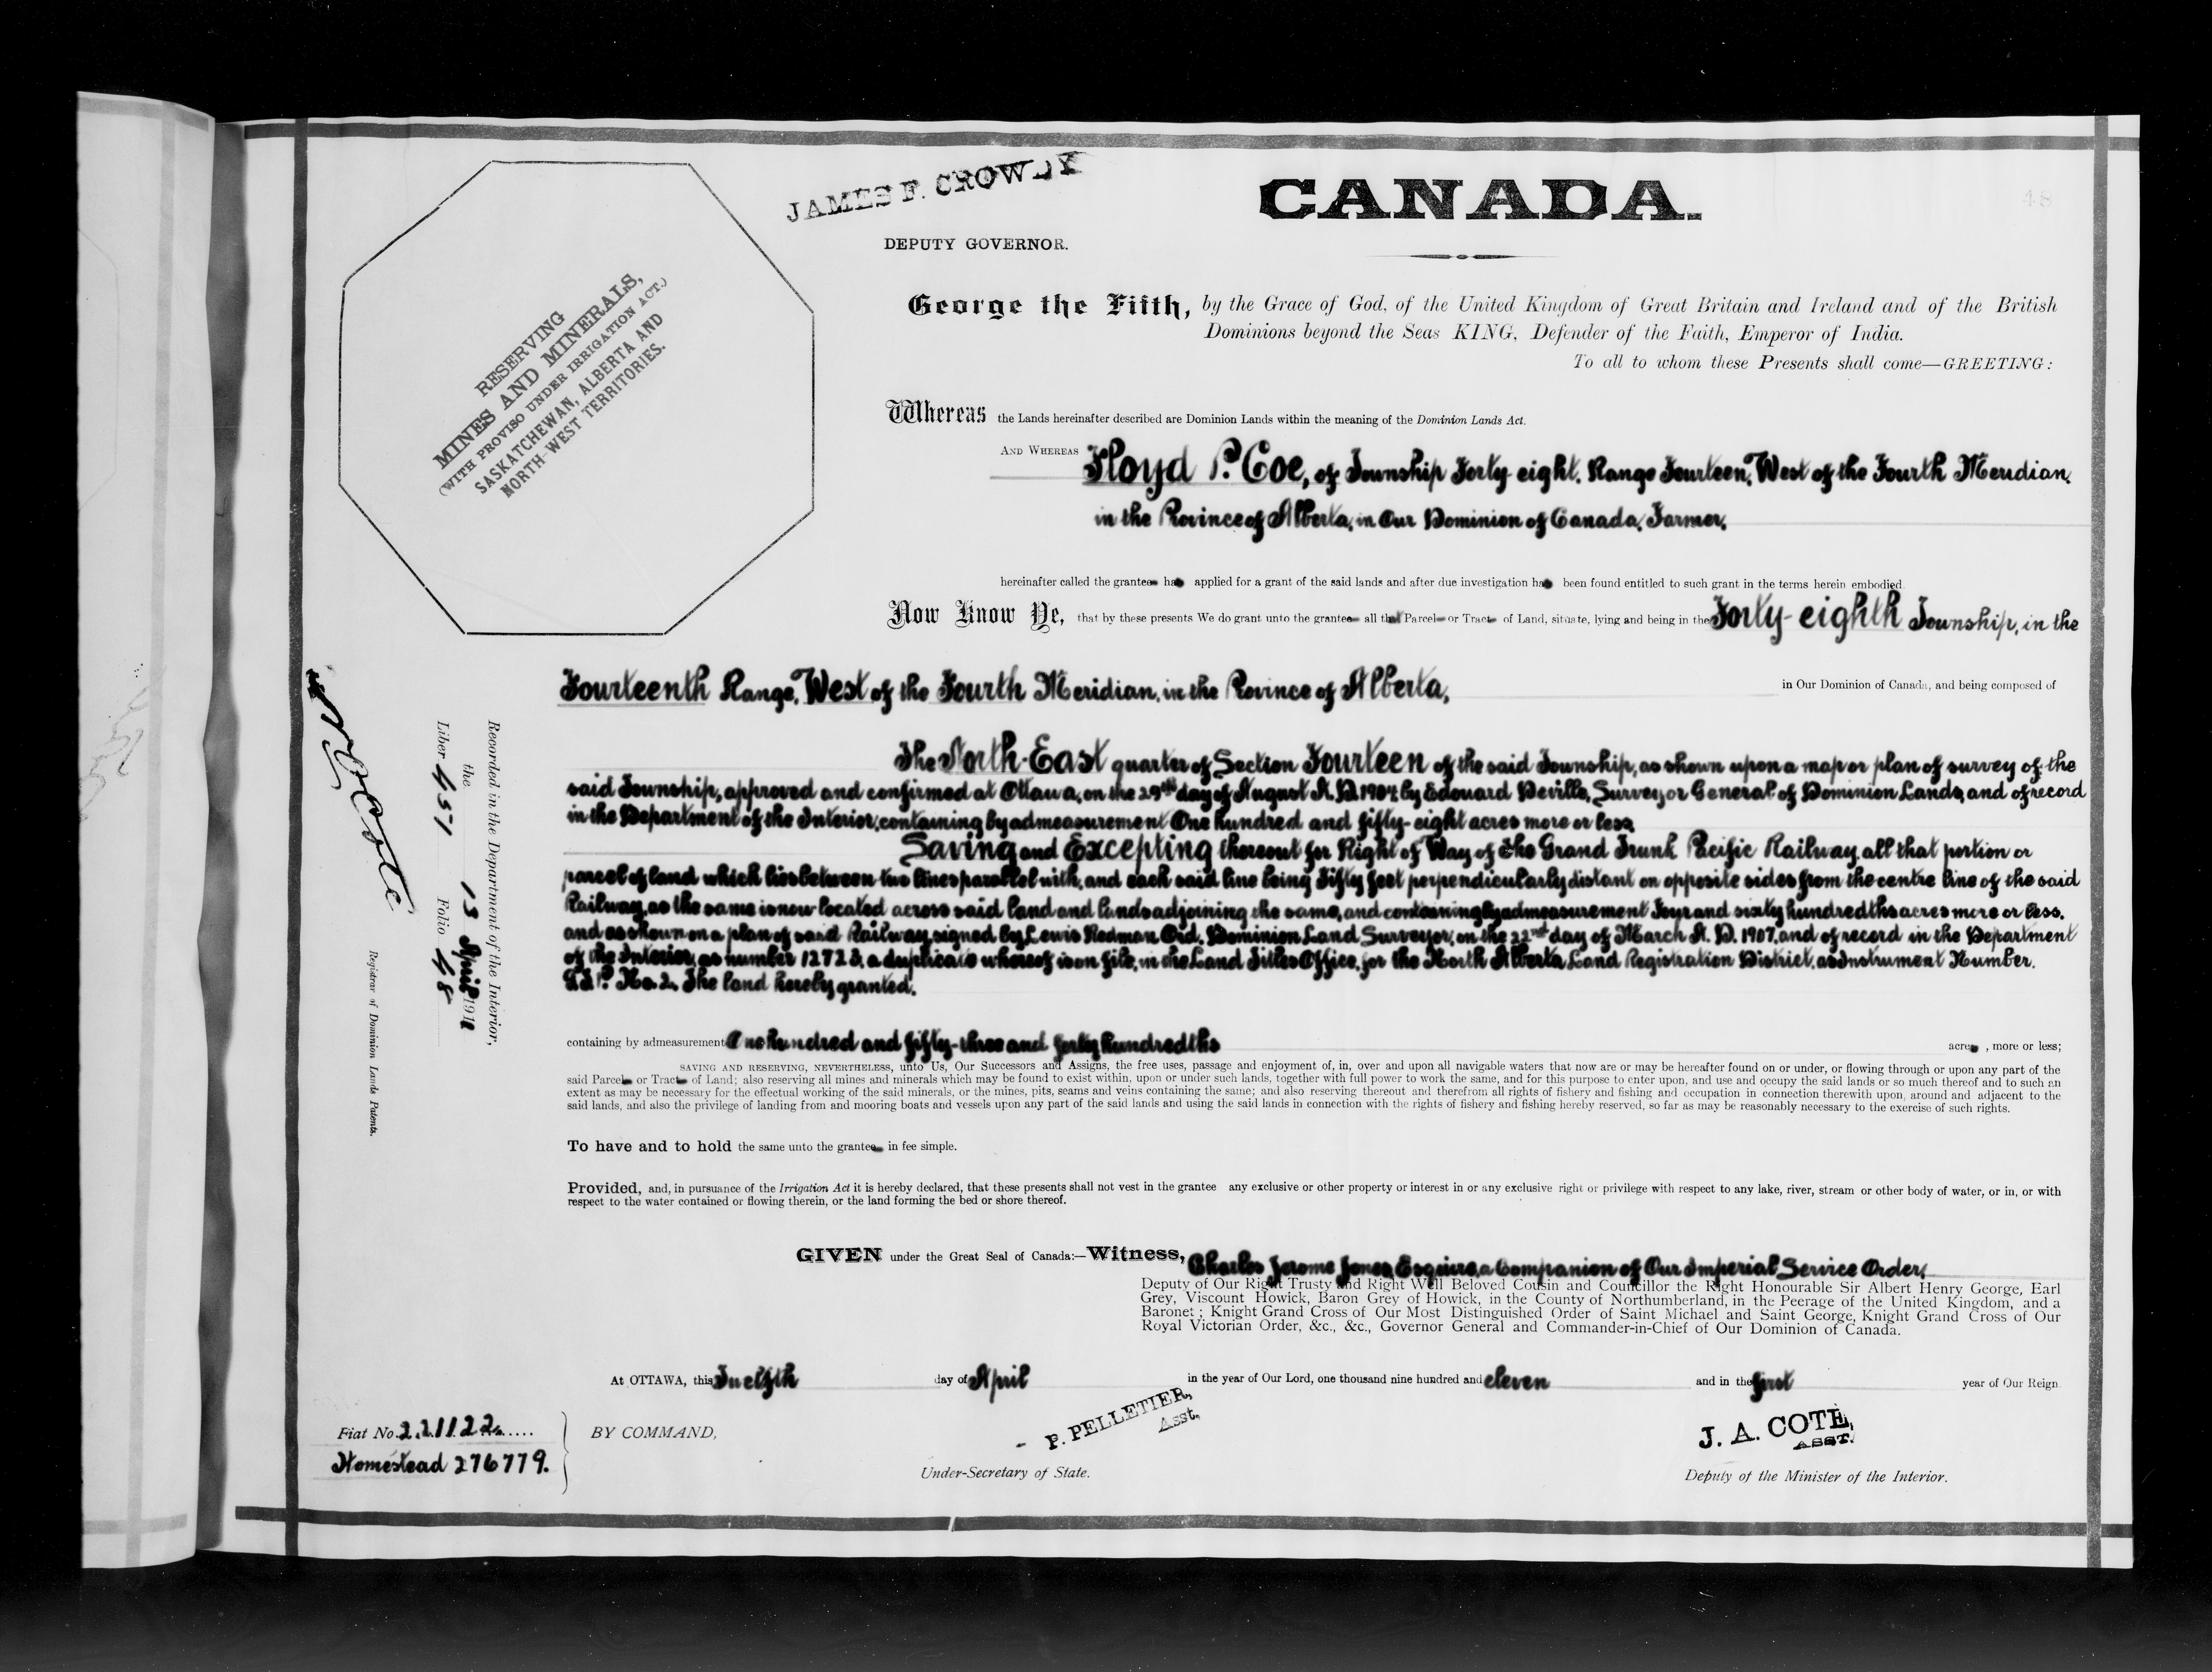 JAMES F. CROWDY
DEPUTY GOVERNOR.
CANADA.
48
RESERVING
MINES AND MINERALS,
(WITH PROVISO UNDER IRRIGATION ACT.)
SASKATCHEWAN, ALBERTA AND
NORTH-WEST TERRITORIES.
George the Fifth, by the Grace of God, of the United Kingdom of Great Britain and Ireland and of the British
Dominions beyond the Seas KING, Defender of the Faith, Emperor of India.
To all to whom these Presents shall come—GREETING:
Whereas the Lands hereinafter described are Dominion Lands within the meaning of the Dominion Lands Act.
AND WHEREAS Floyd P. Coe, of Township Forty eight, Range Fourteen, West of the Fourth Meridian,
in the Province of Alberta, in Our Dominion of Canada, Farmer,
hereinafter called the grantee has applied for a grant of the said lands and after due investigation has been found entitled to such grant in the terms herein embodied.
Now Know Ye, that by these presents We do grant unto the grantee all that Parcel or Tract of Land, situate, lying and being in the Forty-eighth Township, in the
Fourteenth Range, West of the Fourth Meridian, in the Province of Alberta, in Our Dominion of Canada, and being composed of
The North-East quarter of Section Fourteen of the said Township, as shown upon a map or plan of survey of the
said Township, approved and confirmed at Ottawa, on the 29th day of August A.D. 1904, by Edouard Deville, Surveyor General of Dominion Lands, and of record
in the Department of the Interior, containing by admeasurement One hundred and fifty-eight acres more or less.
Saving and Excepting thereout for Right of Way of the Grand Trunk Pacific Railway, all that portion or
parcel of land which lies between two lines parallel with, and each said line being Fifty feet perpendicularly distant on opposite sides from the centre line of the said
Railway, as the same is now located across said land and lands adjoining the same, and containing by admeasurement Four and sixty hundredths acres more or less,
and as shown on a plan of said Railway, signed by Lewis Redman Ord, Dominion Land Surveyor, on the 22nd day of March A.D. 1907, and of record in the Department
of the Interior, as number 12728, a duplicate whereof is on file, in the Land Titles Office, for the North Alberta Land Registration District, as Instrument Number.
G.T.P. No. 2. The land hereby granted.
containing by admeasurement One hundred and fifty-three and forty hundredths acres, more or less;
SAVING AND RESERVING, NEVERTHELESS, unto Us, Our Successors and Assigns, the free uses, passage and enjoyment of, in, over and upon all navigable waters that now are or may be hereafter found on or under, or flowing through or upon any part of the
said Parcel or Tract of Land; also reserving all mines and minerals which may be found to exist within, upon or under such lands, together with full power to work the same, and for this purpose to enter upon, and use and occupy the said lands or so much thereof and to such an
extent as may be necessary for the effectual working of the said minerals, or the mines, pits, seams and veins containing the same; and also reserving thereout and therefrom all rights of fishery and fishing and occupation in connection therewith upon, around and adjacent to the
said lands, and also the privilege of landing from and mooring boats and vessels upon any part of the said lands and using the said lands in connection with the rights of fishery and fishing hereby reserved, so far as may be reasonably necessary to the exercise of such rights.
To have and to hold the same unto the grantee in fee simple.
Provided, and, in pursuance of the Irrigation Act it is hereby declared, that these presents shall not vest in the grantee any exclusive or other property or interest in or any exclusive right or privilege with respect to any lake, river, stream or other body of water, or in, or with
respect to the water contained or flowing therein, or the land forming the bed or shore thereof.
GIVEN under the Great Seal of Canada:—Witness, Charles Jerome Jones, Esquire, a Companion of Our Imperial Service Order,
Deputy of Our Right Trusty and Right Well Beloved Cousin and Councillor the Right Honourable Sir Albert Henry George, Earl
Grey, Viscount Howick, Baron Grey of Howick, in the County of Northumberland, in the Peerage of the United Kingdom, and a
Baronet; Knight Grand Cross of Our Most Distinguished Order of Saint Michael and Saint George, Knight Grand Cross of Our
Royal Victorian Order, &c., &c., Governor General and Commander-in-Chief of Our Dominion of Canada.
At OTTAWA, this Twelfth day of April in the year of Our Lord, one thousand nine hundred and eleven and in the first year of Our Reign
BY COMMAND,
P. PELLETIER,
Asst.
Under-Secretary of State.
J. A. COTE,
ASST.
Deputy of the Minister of the Interior.
Fiat No. 221122
Homestead 276779.
Recorded in the Department of the Interior,
the 13 April 1911
Liber 451 Folio 48
N O Coste
Registrar of Dominion Lands Patents.